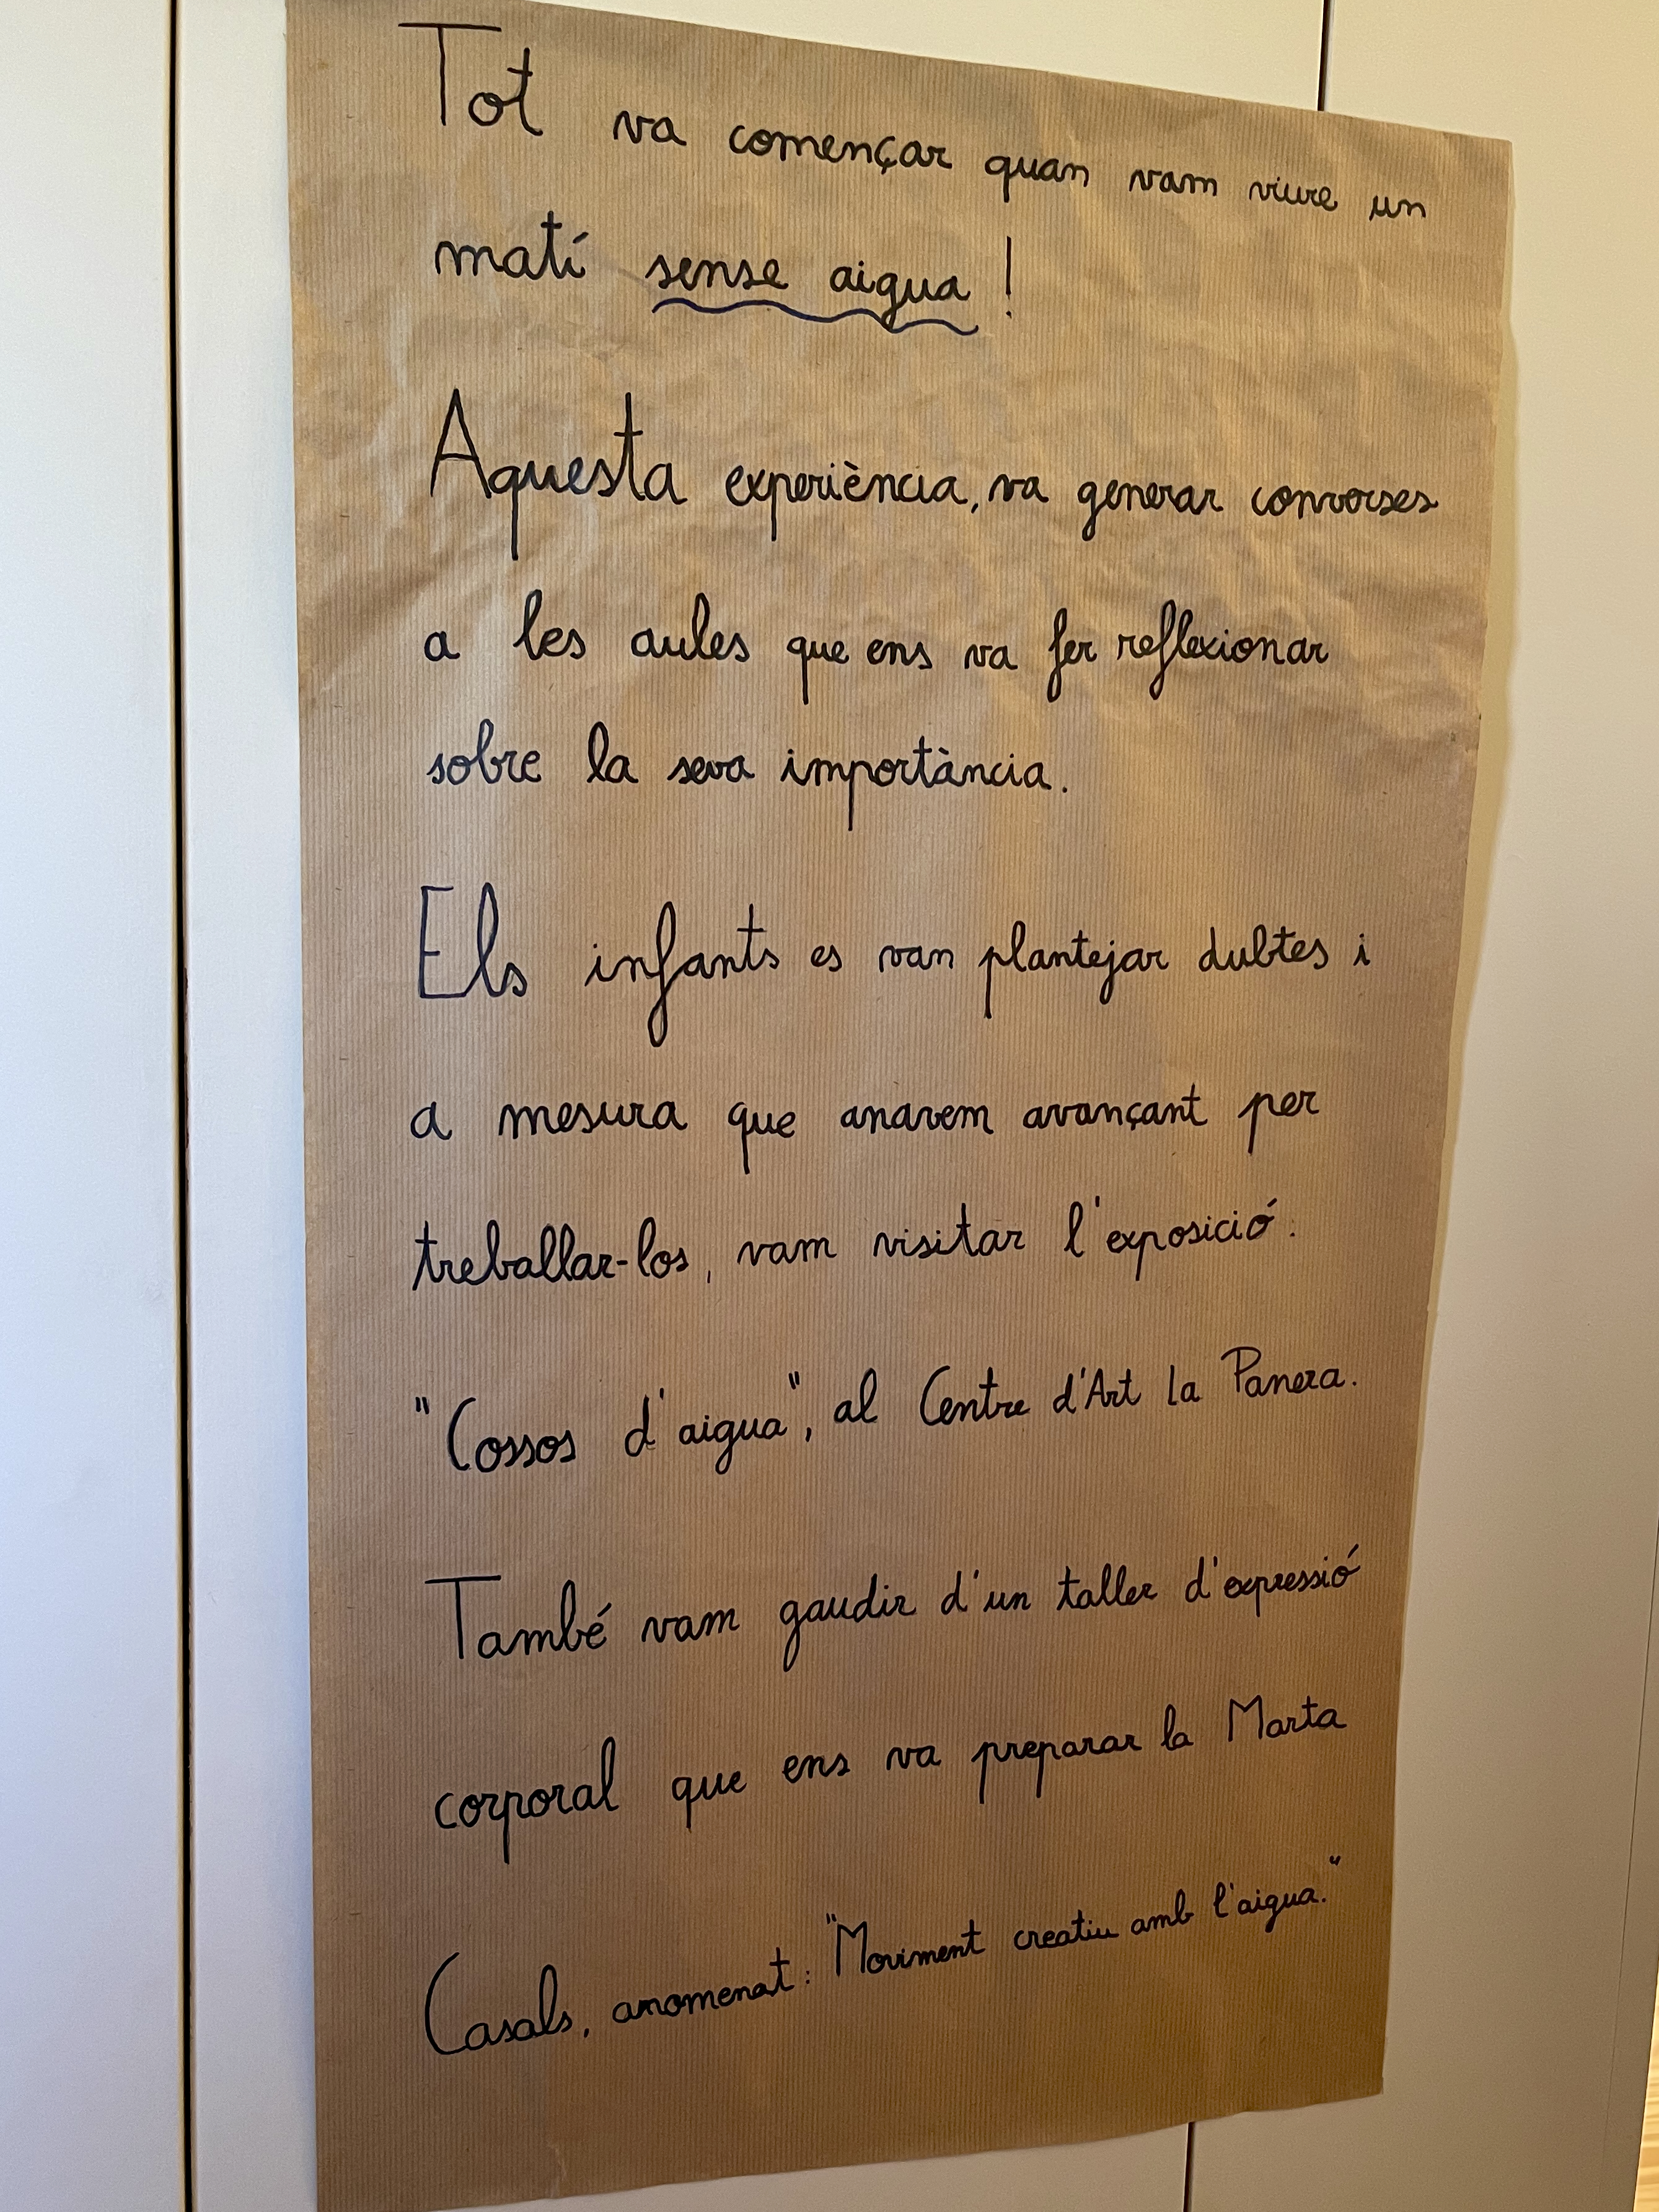 Tot va començar quan vam viure un
matí sense aigua!
Aquesta experiència, va generar converses
a les aules que ens va fer reflexionar
sobre la seva importància.
Els infants es van plantejar dubtes i
a mesura que anavem avançant per
treballar-los, vam visitar l'exposició:
"Cossos d'aigua", al Centre d'Art la Panera.
També vam gaudir d'un taller d'expressió
corporal que ens va preparar la Marta
Casals, anomenat: "Moviment creatiu amb l'aigua."